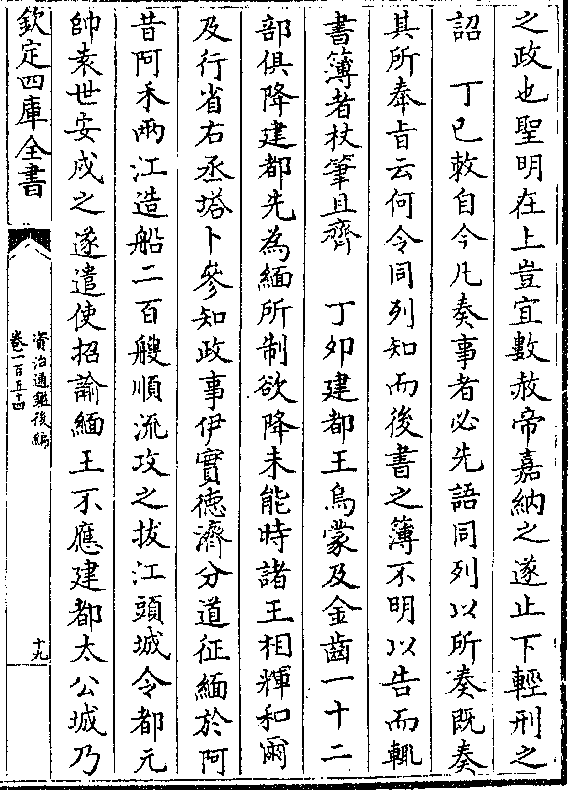 之政也聖明在上豈宜數赦帝嘉納之遂止下輕刑之
詔　丁巳敕自今凡奏事者必先語同列以所奏既奏
其所奉旨云何令同列知而後書之簿不明以告而輒
書簿者杖筆且齊　丁卯建都王烏蒙及金齒一十二
部俱降建都先為緬所制欲降未能時諸王相輝和爾
及行省右丞塔卜參知政事伊實德濟分道征緬於阿
昔阿禾兩江造船二百艘順流攻之拔江頭城令都元
帥袁世安戍之遂遣使招諭緬王不應建都太公城乃
欽定四庫全書
資治通鑑後編
卷一百五十四
十九